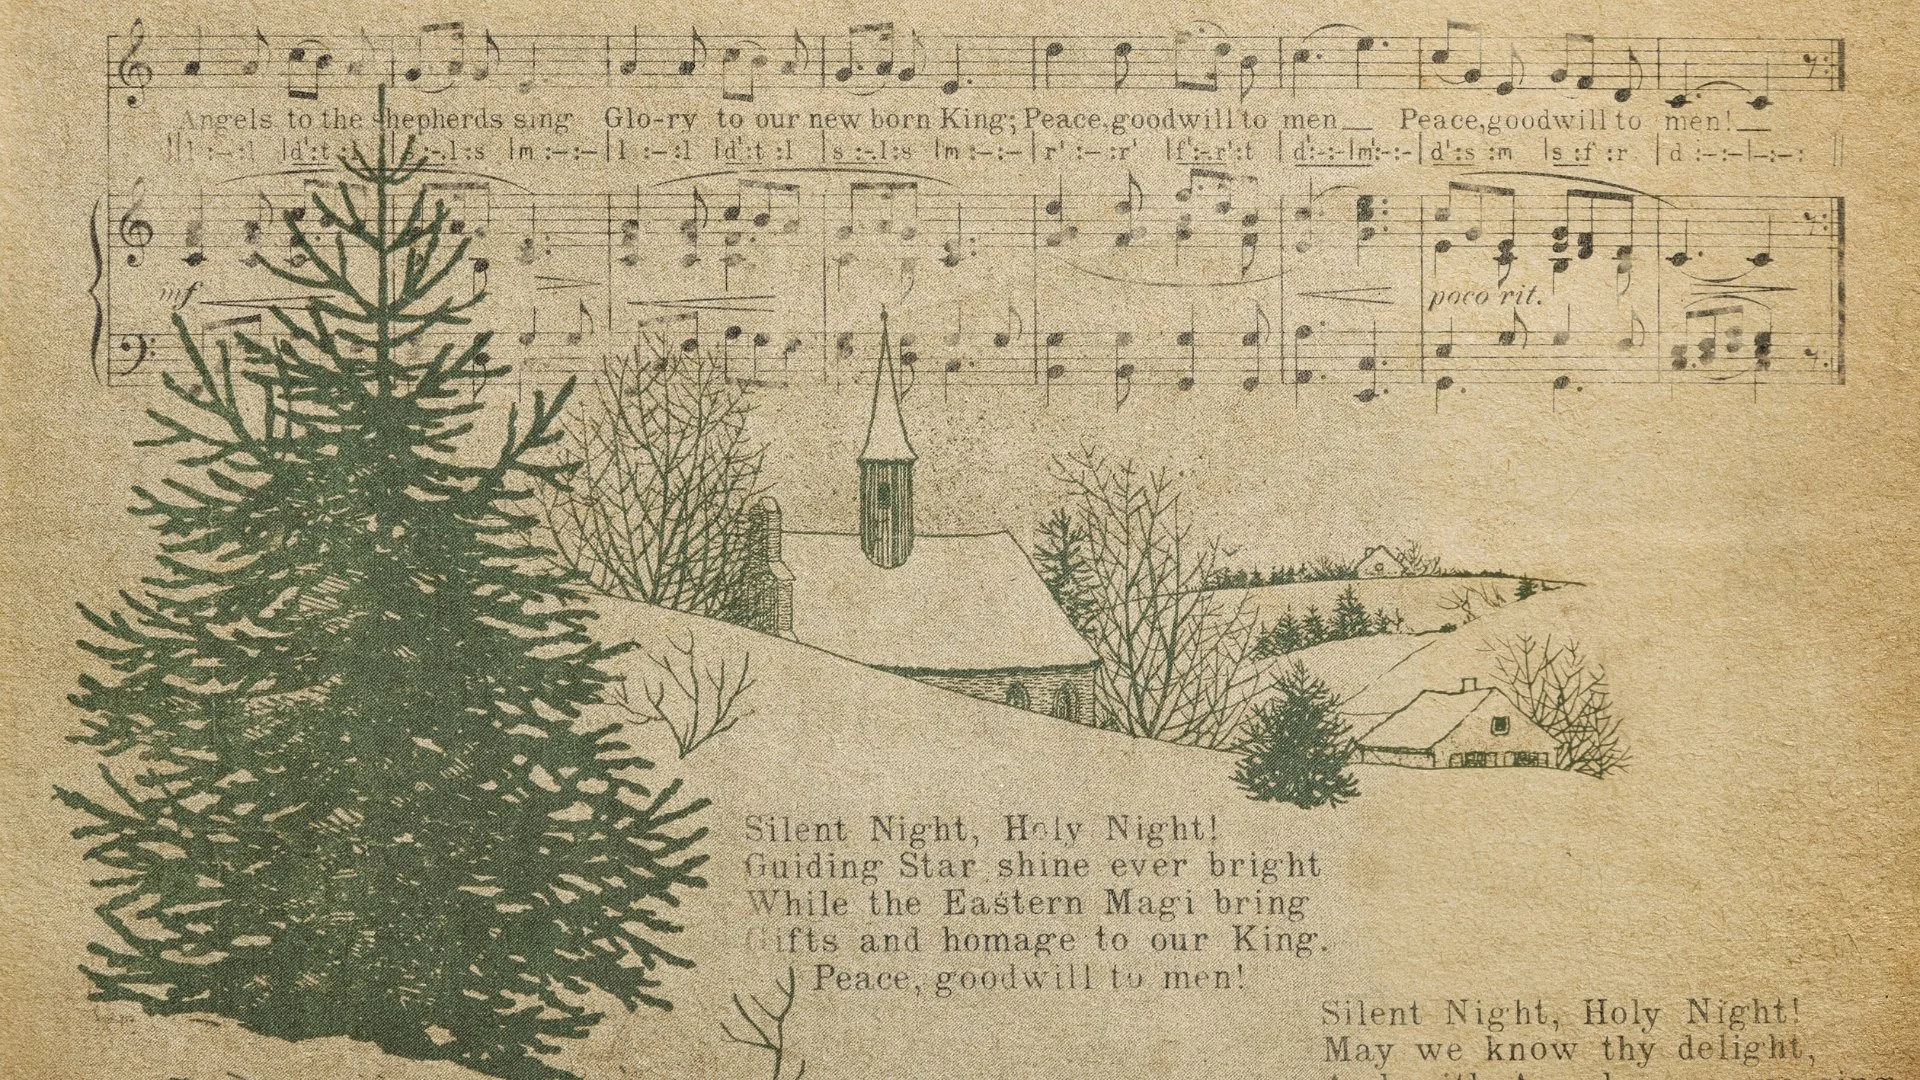 Angels to the shepherds sing Glo-ry to our new born King; Peace, goodwill to men__ Peace, goodwill to men!__
l :-:l d':t :l s :-.l:s m :-:- l :-:l d':t :l s :-.l:s m :-:- r' :-:r' f':-.r':t d':-:- m':-:- d':s :m s :f :r d :-:- -:-:
mf
poco rit.
Silent Night, Holy Night!
Guiding Star shine ever bright
While the Eastern Magi bring
Gifts and homage to our King.
Peace, goodwill to men!
Silent Night, Holy Night!
May we know thy delight,